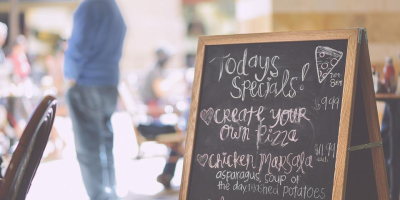 Today's
Specials!
$9.99
♡ Create your
own Pizza
♡ Chicken Marsala $11.99
asparagus, soup of
the day, mashed potatoes